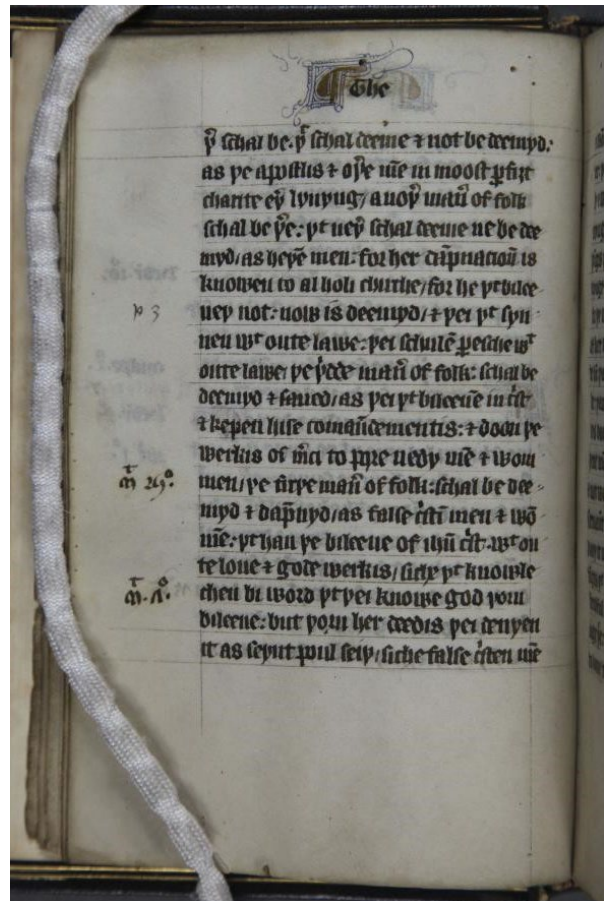 The
þͬ schal be. þͬ schal deeme ⁊ not be deemyd:
as þe apostlis ⁊ oþͬe mē in moost ꝑfizt
charite eūͬ lyuyng / anoþͬ manͬ of folk
schal be þͬe: þt neyͬ schal deeme ne be dee
myd / as heþē men: for her dāpnacioū is
knowen to al holi chirche / for he þt bilee
ueþ not: now is deemyd / ⁊ þei þt syn
nen wͭ oute lawe: þei schulē ꝑesche wͭ
oute lawe / þe þͥdde manͬ of folk: schal be
deemyd ⁊ saued / as þei þt bileeue in cͥst
⁊ kepen hise comaūdementis: ⁊ doon þe
werkis of mͨi to pore nedy mē ⁊ wom
men / þe firþe manͬ of folk: schal be dee
myd ⁊ dāpnyd / as false cͥstē men ⁊ wō
mē: þt han þe bileeue of ihū cͥst. wͭ ou
te loue ⁊ gode werkis / siche þt knowle
chen bi word þt þei knowe god þoru
bileeue: but þoru her deedis þei denyen
it as seynt poul seiþ / siche false cͥsten mē